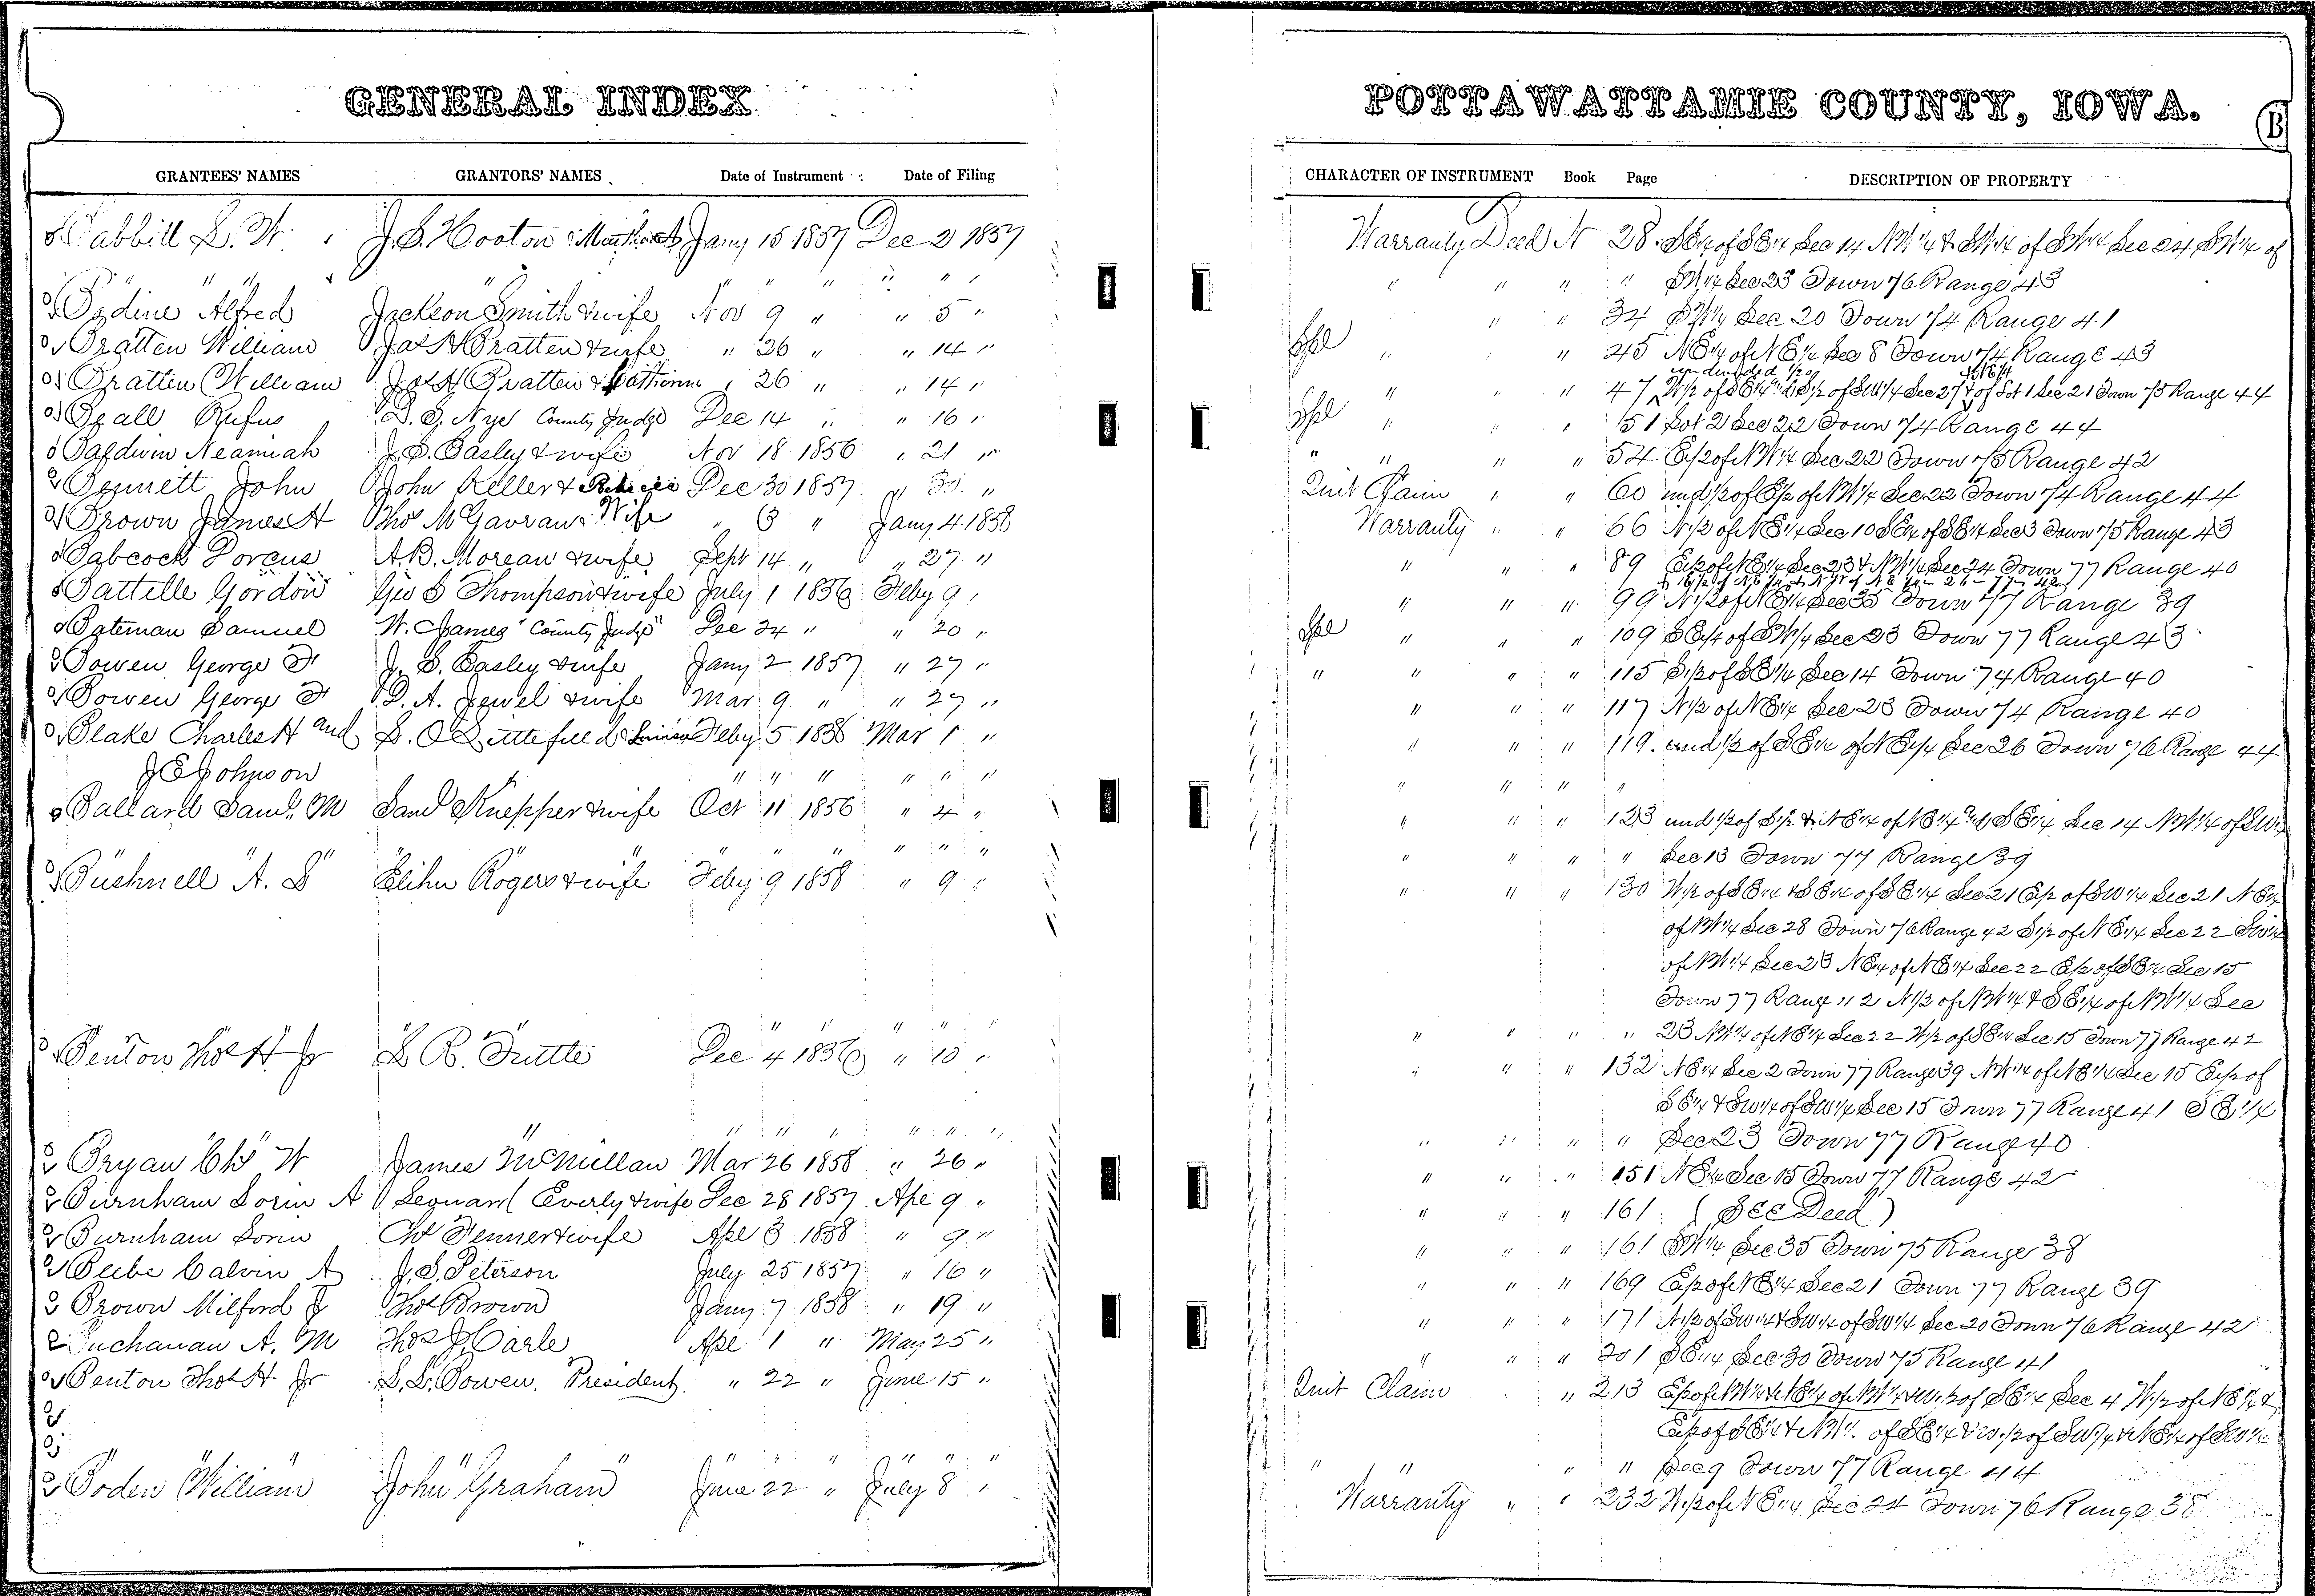 GENERAL INDEX
GRANTEES' NAMES GRANTORS' NAMES Date of Instrument Date of Filing
Babbitt L. W. J. S. Hooton Jany 15 1857 Dec 2 1857
" " " " " " " " "
Bodine Alfred Jackson Smith & wife Nov 9 " " 5 "
Bratten William Jas H Bratten & wife " 26 " " 14 "
Bratten William Jas H Bratten & Catherine " 26 " " 14 "
Beall Rufus D. S. Nye County Judge Dec 14 " " 16 "
Baldwin Neamiah J. S. Easley & wife Nov 18 1856 " 21 "
Bennett John John Keller & Dec 30 1857 " "
Brown James A Thos McGavran & Wife " 3 " Jany 4 1858
Babcock Dorcus A. B. Moreau & wife Sept 14 " " 27 "
Battelle Gordon Geo S Thompson & wife July 1 1856 Feby 9 "
Bateman Samuel W. James "County Judge" Dec 24 " " 20 "
Bowen George H J. S. Easley & wife Jany 2 1857 " 27 "
Bowen George H D. A. Jewel & wife Mar 9 " " 27 "
Blake Charles H and L. O Littlefield & Feby 5 1858 Mar 1 "
J E Johnson " " " " " "
Ballard Saml. M Saml Knepper & wife Oct 11 1856 " 4 "
" " " " " " " " "
Bushnell A. S Elihu Rogers & wife Feby 9 1858 " 9 "
" " " " " " "
Benton Thos H Jr L R. Tuttle Dec 4 1856 " 10 "
" " " " " " "
Bryan Chs W James McMillan Mar 26 1858 " 26 "
Burnham Lorin A Leonard Everly & wife Dec 28 1857 Apl 9 "
Burnham Lorin Fenner & wife Apl 3 1858 " 9 "
Beebe Calvin A J. S. Peterson July 25 1857 " 16 "
Brown Milford J Thos Brown Jany 7 1858 " 19 "
Buchanan A. M Thos J. Carle Apl 1 " May 25 "
Benton Thos H Jr L. L. Bowen, President " 22 " June 15 "
" " " " " " " "
Boden William John Graham June 22 " July 8 "
POTTAWATTAMIE COUNTY, IOWA.
B
CHARACTER OF INSTRUMENT Book Page DESCRIPTION OF PROPERTY
Warranty Deed N 28 SE¼ of SE¼ Sec 14 NW¼ & SW¼ of SW¼ Sec 24 SW¼ of
" " " " SW¼ Sec 23 Town 76 Range 43
" " 34 SW¼ Sec 20 Town 74 Range 41
Spl " " 45 NE¼ of NE¼ Sec 8 Town 74 Range 43
undivided 1/20 NE¼
" " " 47 W½ of SE¼ and E½ of SW¼ Sec 27 & of Lot 1 Sec 21 Town 75 Range 44
Spl " " " 51 Lot 2 Sec 22 Town 74 Range 44
" " " " 54 E½ of NW¼ Sec 22 Town 75 Range 42
Quit Claim " " 60 und ½ of E½ of NW¼ Sec 22 Town 74 Range 44
Warranty " " 66 N½ of NE¼ Sec 10 SE¼ of SE¼ Sec 3 Town 75 Range 43
" " " 89 E½ of NE¼ Sec 23 & NW¼ Sec 24 Town 77 Range 40
" " " 99 N½ of NE¼ Sec 35 Town 77 Range 39
Spl " " " 109 SE¼ of SW¼ Sec 23 Town 77 Range 43
" " " " 115 S½ of SE¼ Sec 14 Town 74 Range 40
" " " 117 N½ of NE¼ Sec 23 Town 74 Range 40
" " " 119 und ½ of SE¼ of NE¼ Sec 26 Town 76 Range 44
" " " "
" " " 123 und ½ of S½ & NE¼ of NE¼ and SE¼ Sec 14 NW¼ of SW¼
" " " " Sec 13 Town 77 Range 39
" " " 130 W½ of SE¼ & SE¼ of SE¼ Sec 21 E½ of SW¼ Sec 21 NE¼
of NW¼ Sec 28 Town 76 Range 42 S½ of NE¼ Sec 22 SW¼
of NW¼ Sec 23 NE¼ of NE¼ Sec 22 E½ of SE¼ Sec 15
Town 77 Range 42 N½ of NW¼ & SE¼ of NW¼ Sec
" " " " 23 NW¼ of NE¼ Sec 22 W½ of SE¼ Sec 15 Town 77 Range 42
" " " 132 NE¼ Sec 2 Town 77 Range 39 NW¼ of NE¼ Sec 15 E½ of
SE¼ & SW¼ of SW¼ Sec 15 Town 77 Range 41 SE¼
" " " " Sec 23 Town 77 Range 40
" " " 151 NE¼ Sec 15 Town 77 Range 42
" " " 161 (See Deed)
" " " 161 SW¼ Sec 35 Town 75 Range 38
" " " 169 E½ of NE¼ Sec 21 Town 77 Range 39
" " " 171 N½ of SW¼ & SW¼ of SW¼ Sec 20 Town 76 Range 42
" " " 201 SE¼ Sec 30 Town 75 Range 41
Quit Claim " 213 E½ of NW¼ & NE¼ of NW¼ & W½ of SE¼ Sec 4 W½ of NE¼ &
E½ of SE¼ & NW¼ of SE¼ & W½ of SW¼ & NE¼ of SW¼
" " " " Sec 9 Town 77 Range 44
Warranty " " 232 W½ of NE¼ Sec 24 Town 76 Range 38